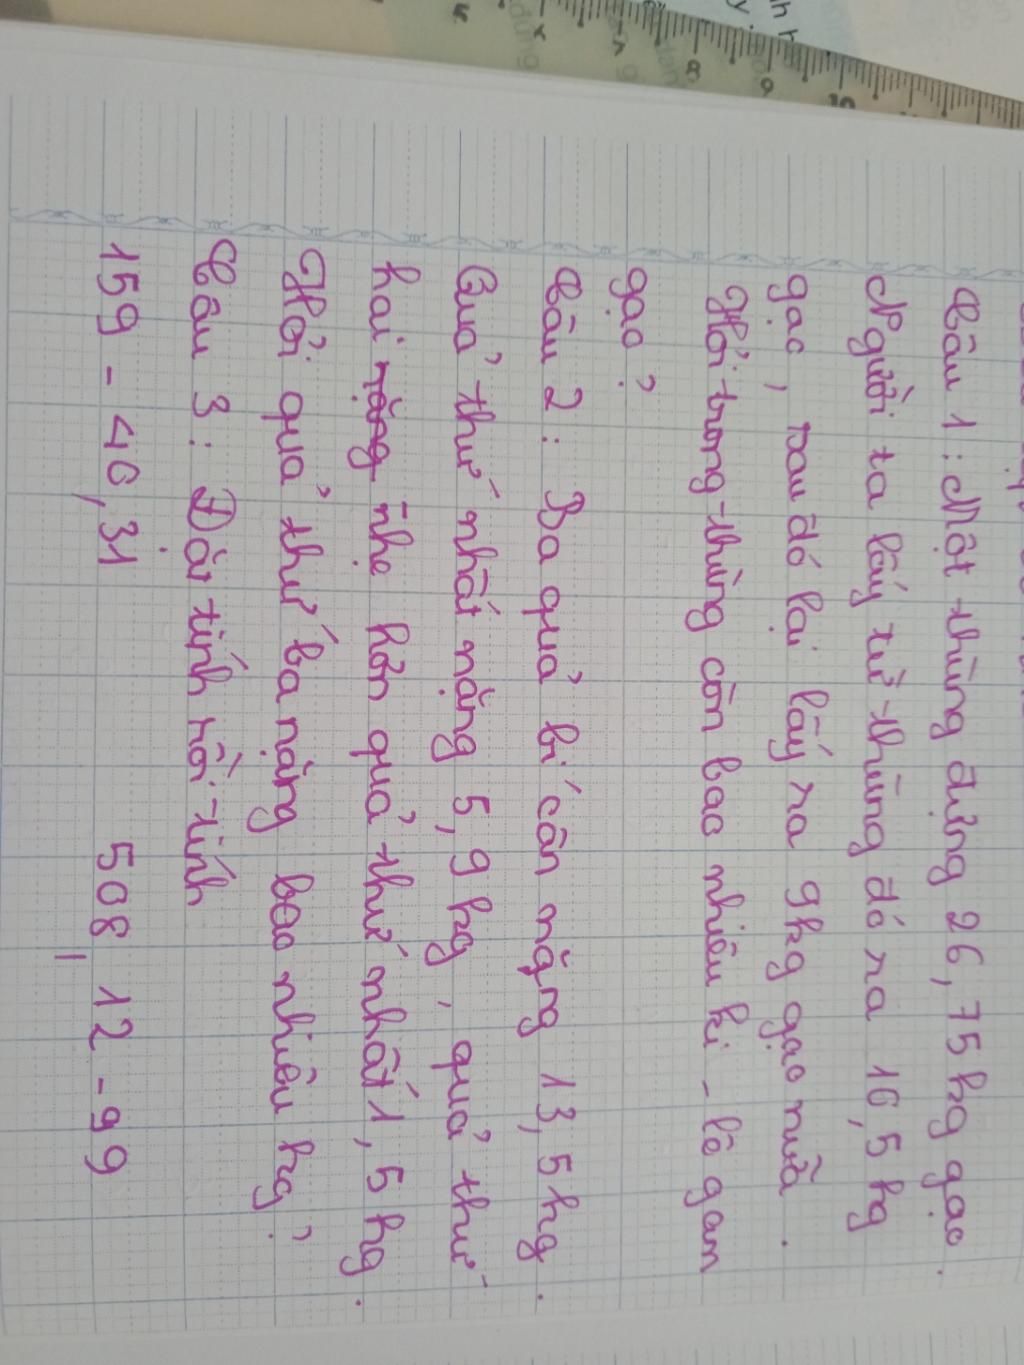 Câu 1: Một thùng đựng 26,75 kg gạo.
Người ta lấy từ thùng đó ra 16,5 kg
gạo, sau đó lại lấy ra 9kg gạo nữa.
Hỏi trong thùng còn bao nhiêu ki-lô gam
gạo?
Câu 2: Ba quả bí cân nặng 13,5 kg.
Quả thứ nhất nặng 5,9 kg, quả thứ
hai nặng nhẹ hơn quả thứ nhất 1,5 kg.
Hỏi quả thứ ba nặng bao nhiêu kg?
Câu 3: Đặt tính rồi tính
159 - 46,31 508,12 - 99
5 7 8 9 10